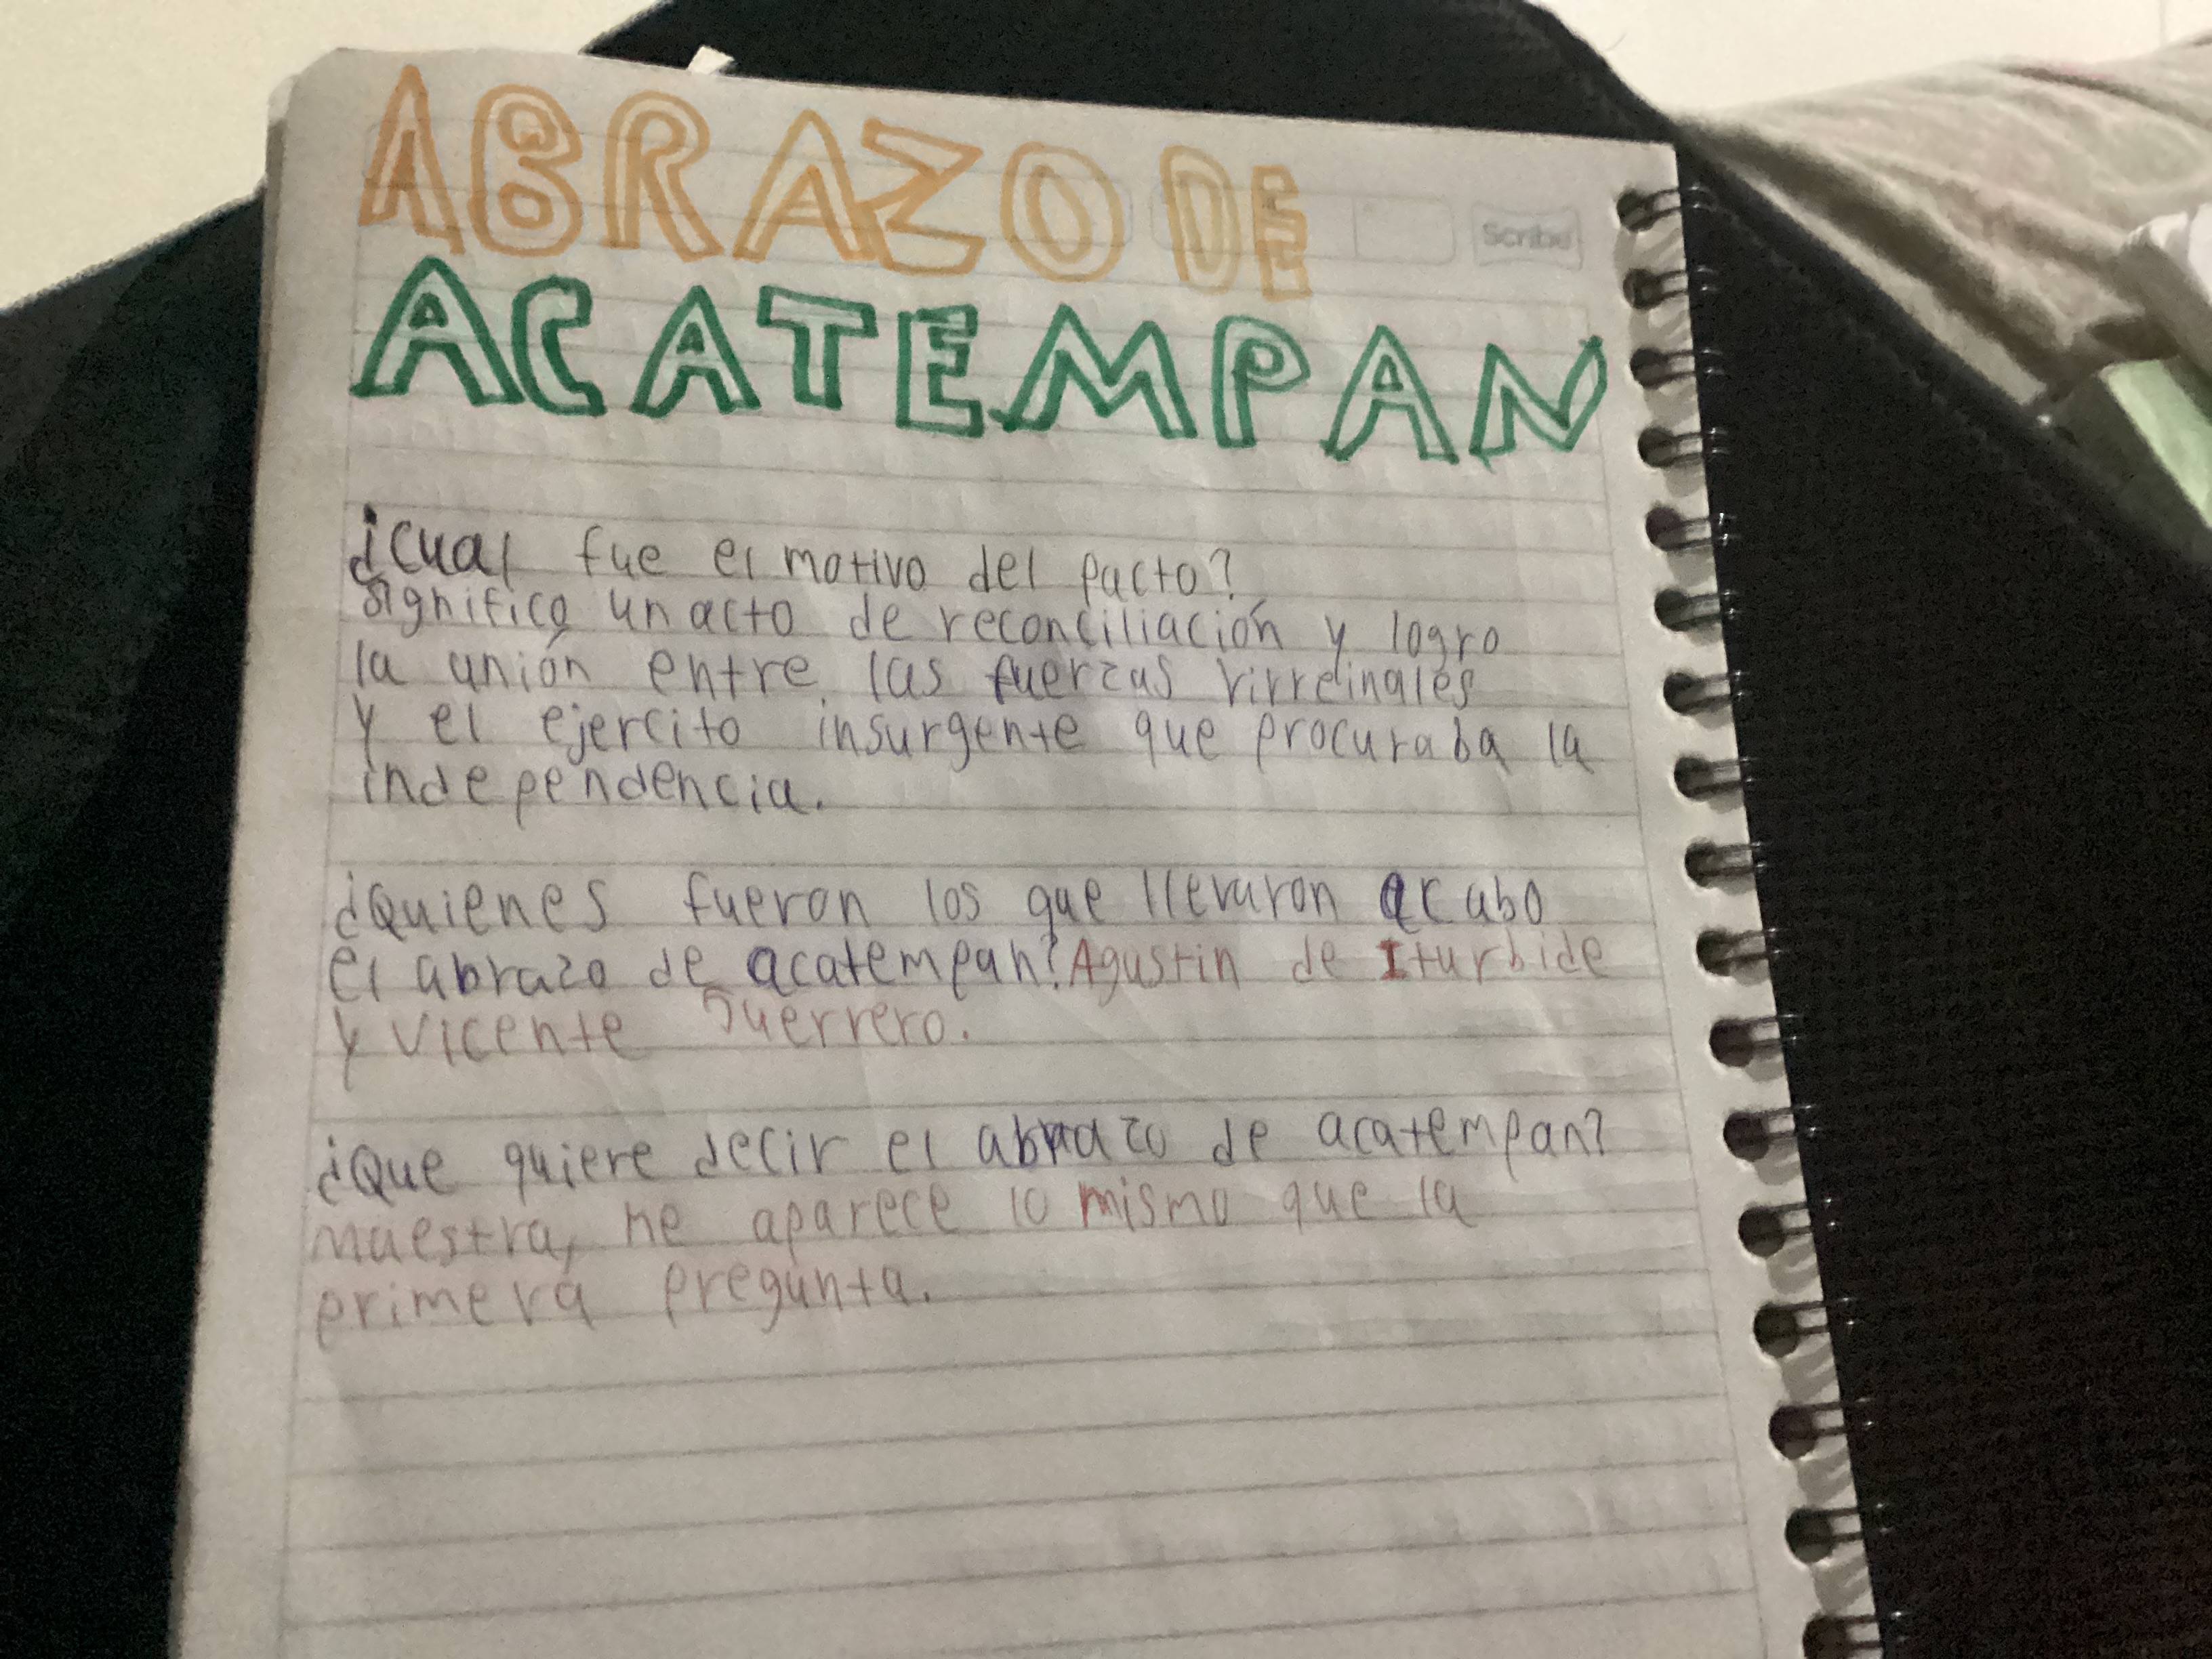 ABRAZO DE
Scribe
ACATEMPAN
¿Cual fue el motivo del pacto?
significo un acto de reconciliación y logro
la unión entre las fuerzas virreinales
y el ejercito insurgente que procuraba la
independencia.
¿Quienes fueron los que llevaron acabo
el abrazo de acatempan? Agustin de Iturbide
y vicente Guerrero.
¿Que quiere decir el abrazo de acatempan?
maestra, me aparece lo mismo que la
primera pregunta.